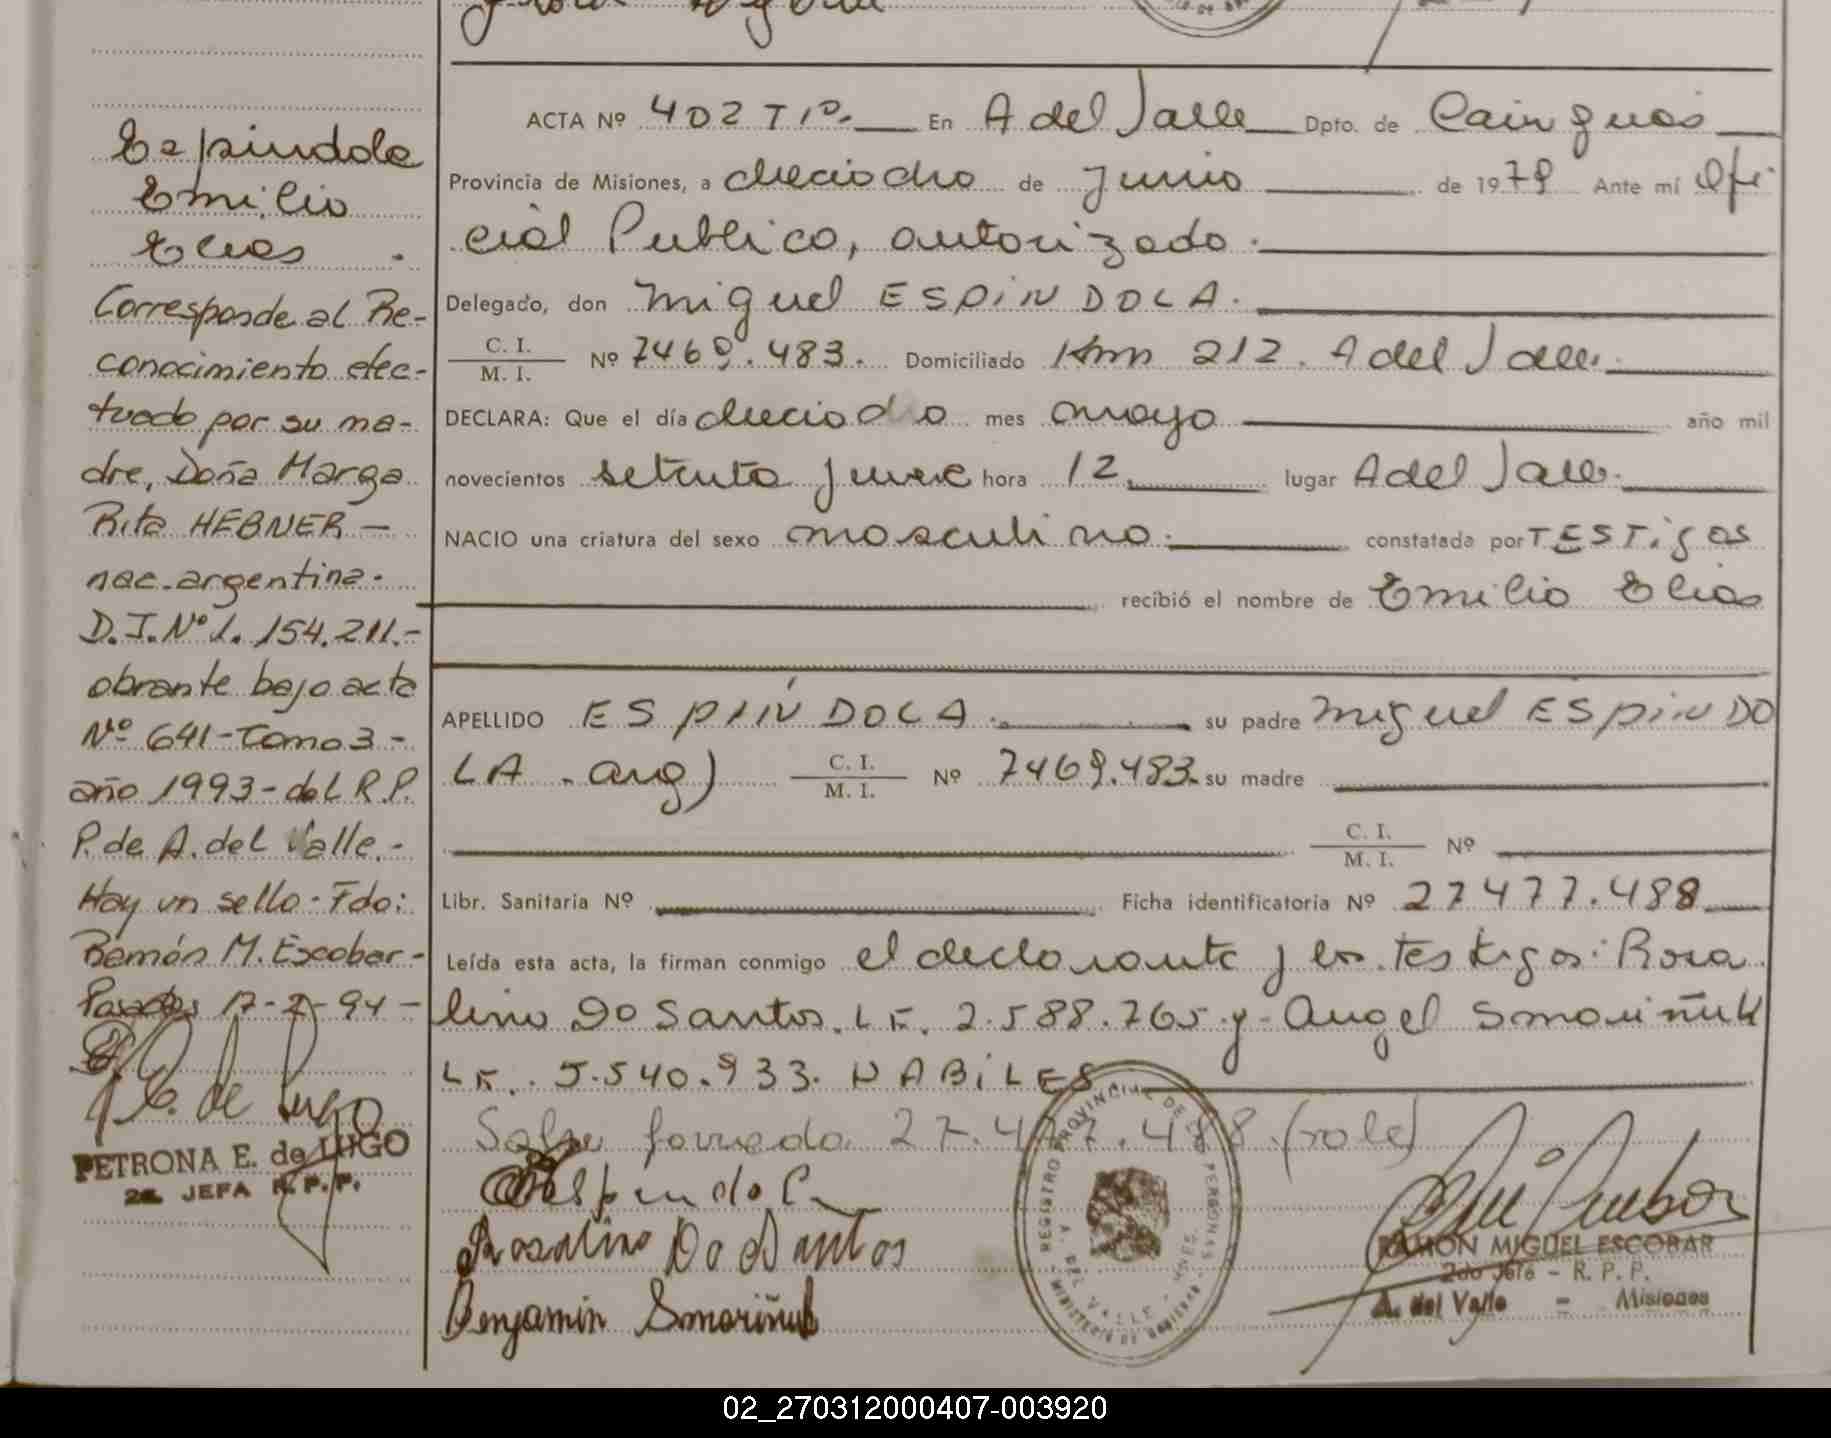 Espindola
Emilio
Elias .
Corresponde al Re-
conocimiento efec-
tuado por su ma-
dre, Doña Marga
Rita HEBNER -
nac. argentina.
D.I. Nº 1.154.211.-
obrante bajo acta
Nº 641-Tomo 3-
año 1993- del R.P.
P. de A. del Valle.-
Hay un sello- Fdo:
Ramón M. Escobar-
Posadas 17-2-94-
PETRONA E. de LUGO
2a. JEFA R. P. P.
ACTA Nº 402 T 1º. En A del Valle Dpto. de Cainguás
Provincia de Misiones, a dieciocho de Junio de 1979 Ante mí Ofi
cial Publico, autorizado.
Delegado, don Miguel ESPINDOLA.
C. I. / M. I. Nº 7469.483. Domiciliado Km 212. A del Valle.
DECLARA: Que el día dieciocho mes mayo año mil
novecientos setenta y nueve hora 12, lugar A del Valle.
NACIO una criatura del sexo masculino. constatada por TESTigos
recibió el nombre de Emilio Elias
APELLIDO ESPÍNDOLA. su padre Miguel ESPINDO
LA . arg) C. I. / M. I. Nº 7469.483. su madre
C. I. / M. I. Nº
Libr. Sanitaria Nº Ficha identificatoria Nº 27477.488
Leída esta acta, la firman conmigo el declarante y los testigos: Rosa
lino Do Santos. L E. 2.588.765. y- Angel Smoriñuk
L E.. 5.540.933. HABILES
Salve forreado 27.477.488. (vale)
Espindola
Rosalino Do Santos
Benjamin Smoriñuk
REGISTRO PROVINCIAL DE LAS PERSONAS
A. DEL VALLE - MNES.
MINISTERIO DE GOBIERNO
RAMON MIGUEL ESCOBAR
2do Jefe - R. P. P.
A. del Valle - Misiones
02_270312000407-003920